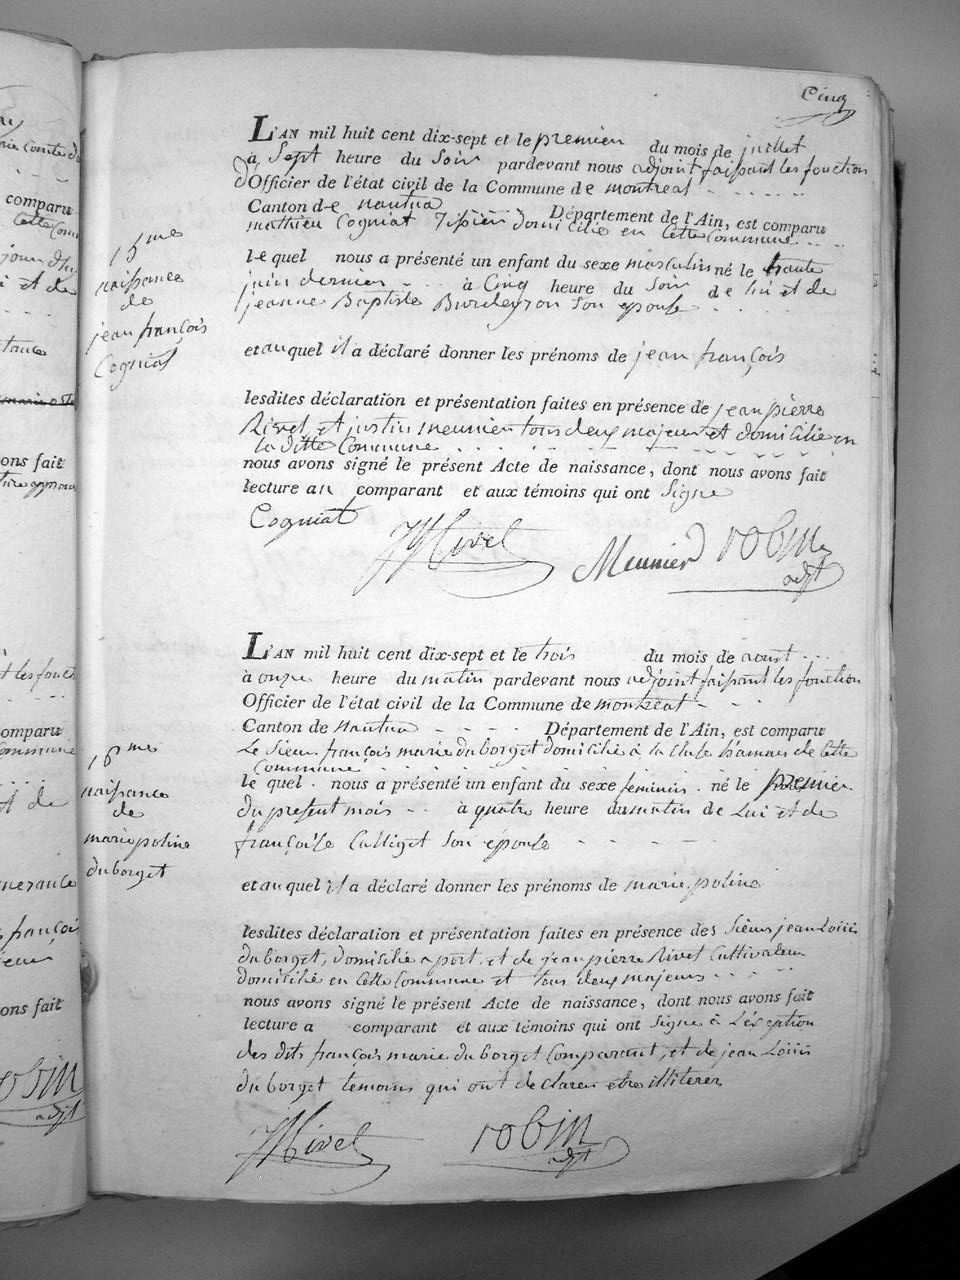 Cinq
L'AN mil huit cent dix-sept et le premier du mois de juillet
à Sept heure du Soir pardevant nous adjoint faisant les fonction
d'Officier de l'état civil de la Commune de montreal
Canton de nantua Département de l'Ain, est comparu
mathieu Cogniat domicilie en Cette Commune
le quel nous a présenté un enfant du sexe masculin né le trente
juin dernier à Cinq heure du Soir de lui et de
jeanne Baptiste Son epouse
et auquel il a déclaré donner les prénoms de jean françois
lesdites déclaration et présentation faites en présence de jean pierre
Rivet, et justin meunier tous deux majeur et domicilie en
la ditte Commune
nous avons signé le présent Acte de naissance, dont nous avons fait
lecture au comparant et aux témoins qui ont Signe
15me
naissance
de
jean françois
Cogniat
Cogniat JPRivet Meunier robin
adjt
L'AN mil huit cent dix-sept et le trois du mois de aoust
à onze heure du matin pardevant nous adjoint faisant les fonction
Officier de l'état civil de la Commune de montreal
Canton de nantua Département de l'Ain, est comparu
Le Sieur françois marie duborget domicilié à la hameau de Cette
Commune
le quel nous a présenté un enfant du sexe feminin né le premier
du present mois à quatre heure du matin de Lui et de
françoise Calliget Son epouse
et auquel il a déclaré donner les prénoms de marie poline
lesdites déclaration et présentation faites en présence des Sieurs jean Louis
duborget, domicilié a port, et de jean pierre Rivet Cultivateur
domicilié en Cette Commune et tous deux majeurs
nous avons signé le présent Acte de naissance, dont nous avons fait
lecture a comparant et aux témoins qui ont Signe à L'exeption
des dits françois marie duborget Comparant, et de jean Louis
duborget temoins qui ont declarer etre illiterer
16me
naissance
de
marie poline
duborget
JPRivet robin
adjt